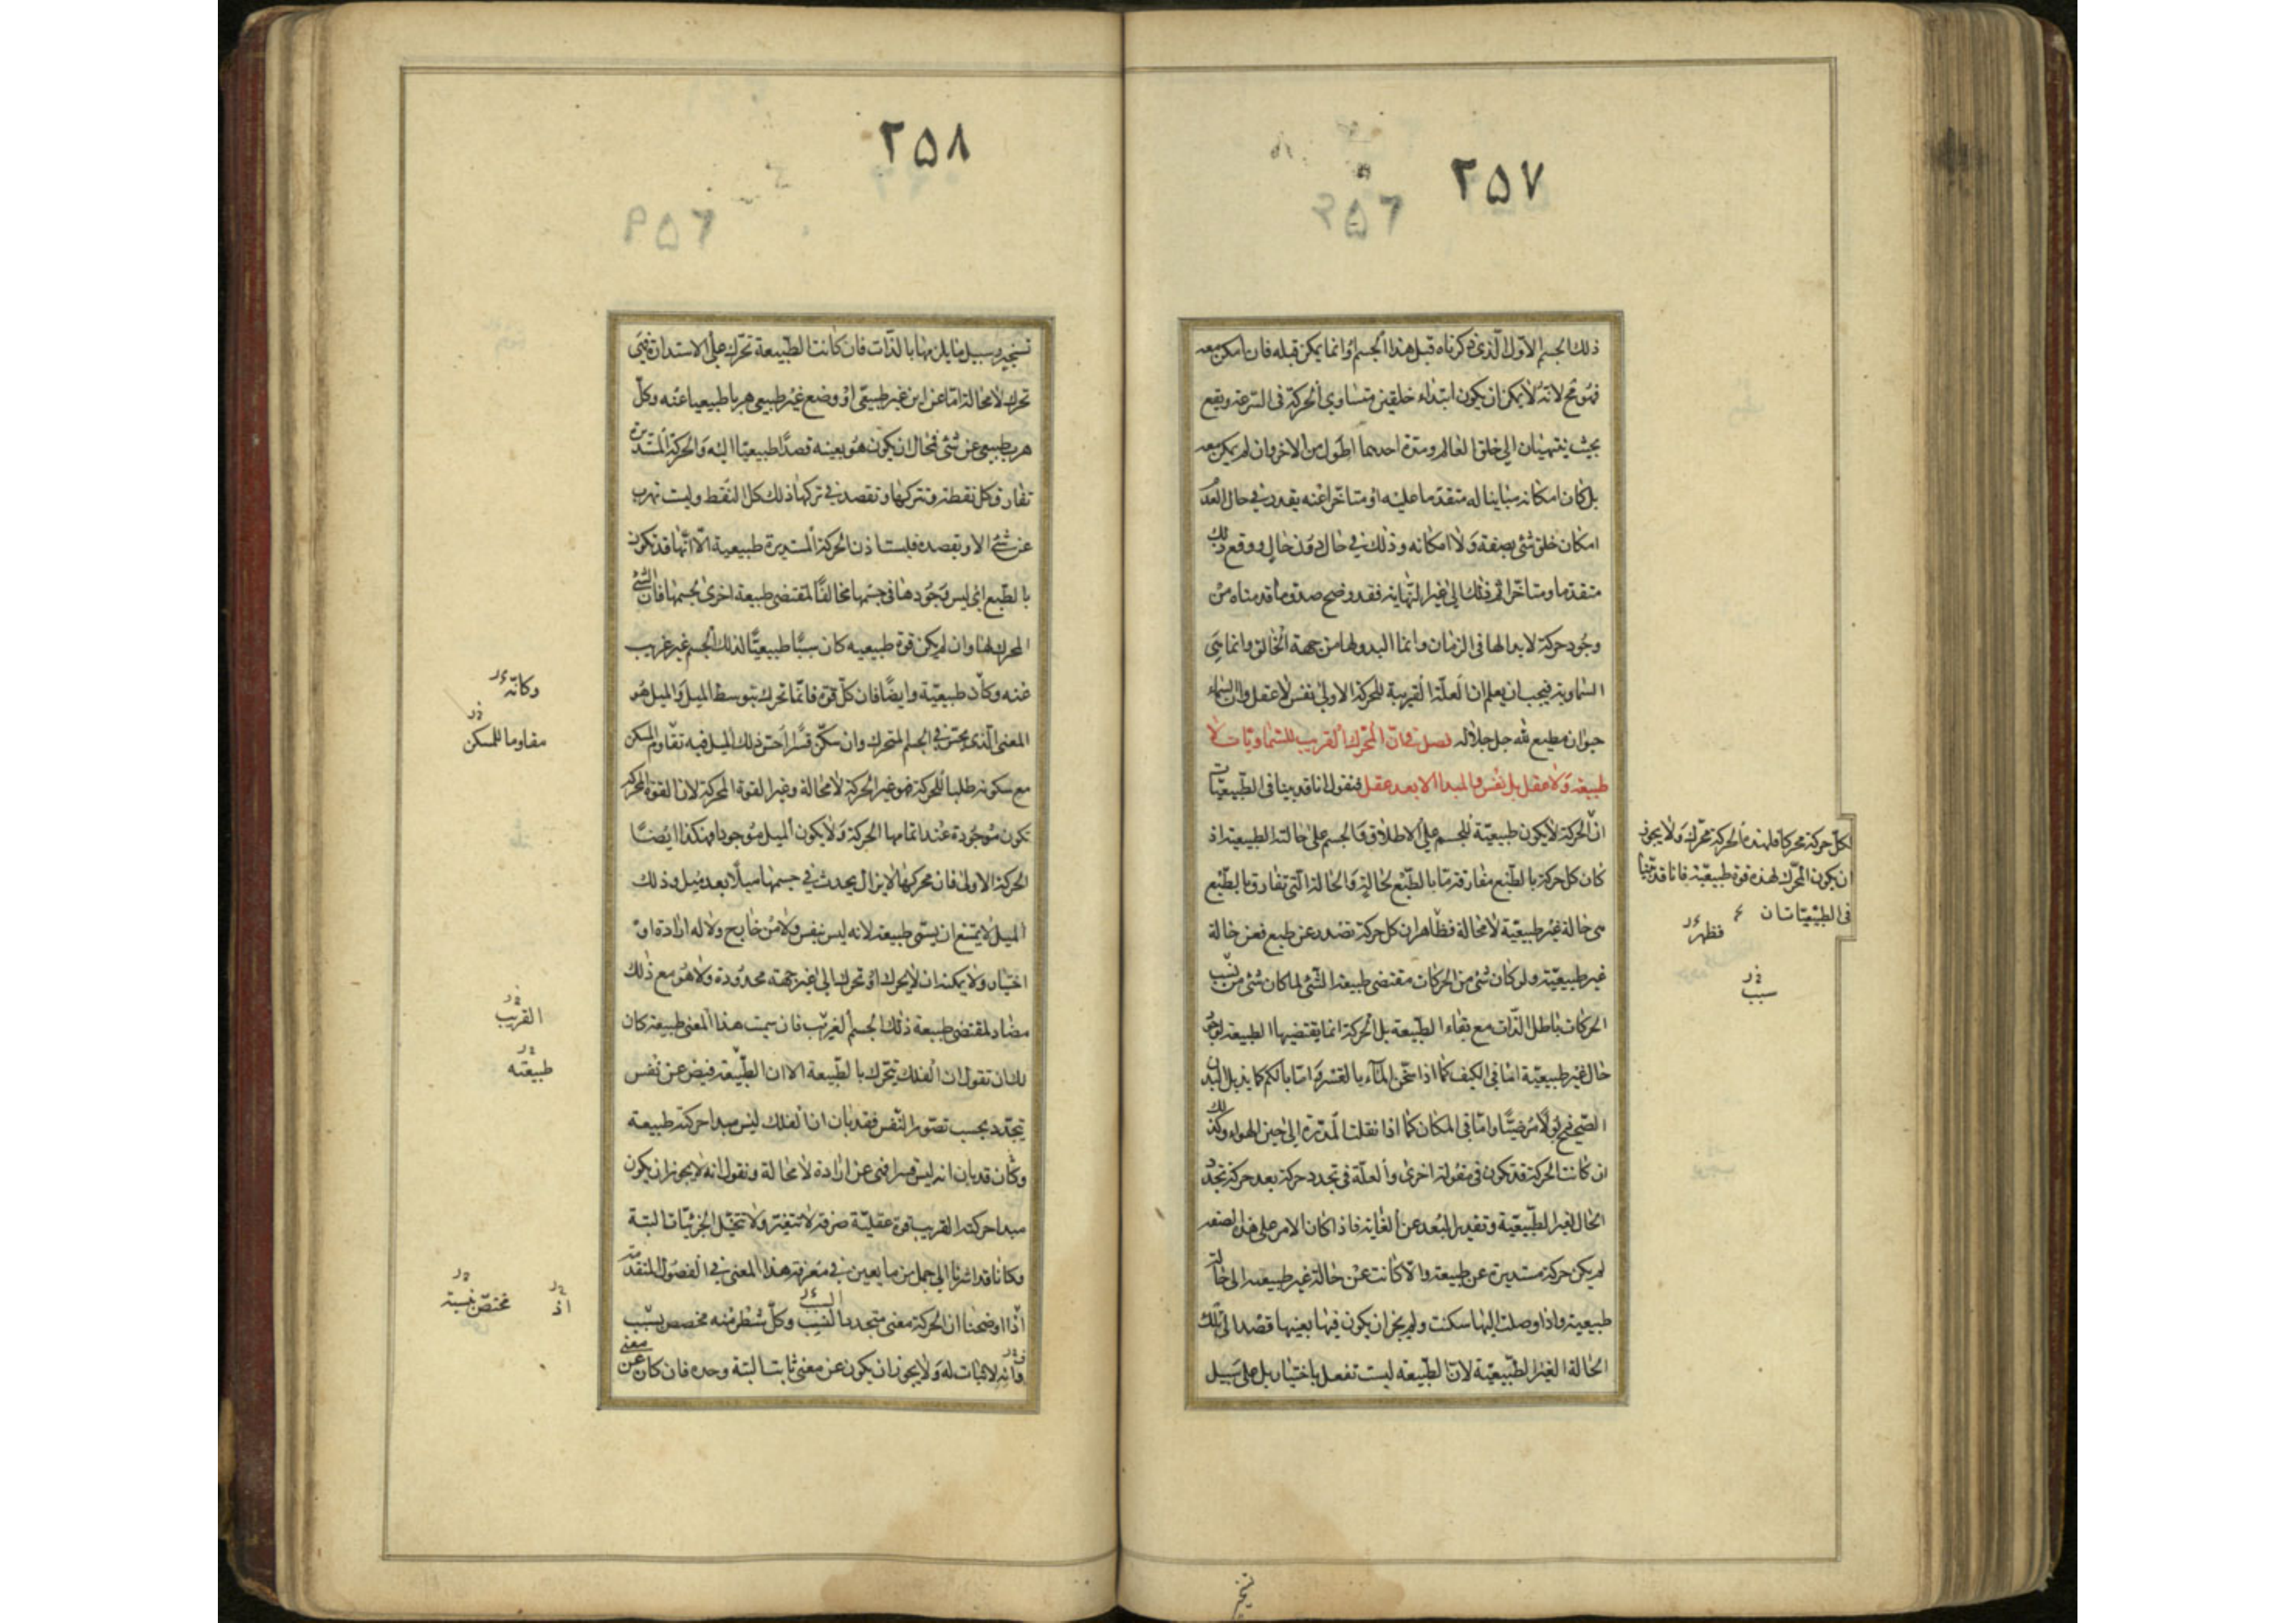 ٢٥٧
ذلك الجسم الاول الذى ذكرناه قبل هذا الجسم او انما يمكن قبله فان امكن معه
فهو مح لانه لا يمكن ان يكون ابتداء خلقين متساوى الحركة فى السرعة ويقع
بحيث ينتهيان الى خلق العالم ومدة احدهما اطول من الاخر وان لم يمكن معه
بل كان امكانه مباينا له متقدما عليه او متاخرا عنه يقدر فى حال العدم
امكان خلق شئ بصفة ولا امكانه وذلك فى حال دون حال ووقع ذلك
متقدما ومتاخرا ثم ذلك الى غير النهاية فقد وضح صدق ما قدمناه من
وجود حركة لا بدا لها فى الزمان وانما البدو لها من جهة الخالق وانما هى
السماوية فيجب ان يعلم ان العلة القريبة للحركة الاولى نفس لا عقل وان السماء
حيوان مطيع لله جل جلاله فصل فى ان المحرك القريب للسماويات لا
طبيعة ولا عقل بل نفس والمبدا الابعد عقل فنقول انا قد بينا فى الطبيعيات
ان الحركة لا يكون طبيعية للجسم على الاطلاق والجسم على حالته الطبيعية اذ
كان كل حركة بالطبع مفارقة ما بالطبع لحالة والحالة التى تفارق بالطبع
هى حالة غير طبيعية لا محالة فظاهر ان كل حركة تصدر عن طبع فعن حالة
غير طبيعية ولو كان شئ من الحركات مقتضى طبيعة الشئ لما كان شئ من نسب
الحركات باطل الذات مع بقاء الطبيعة بل الحركة انما يقتضيها الطبيعة لوجود
حال غير طبيعية اما فى الكيف كما اذا سخن الماء بالقسر واما بالكم كما يذبل البدن
الصحيح ذبولا مرضيا واما فى المكان كما اذا نقلت المدرة الى حيز الهواء وكذلك
ان كانت الحركة قد تكون فى مقولة اخرى والعلة فى تجدد حركة بعد حركة تجدد
الحال الغير الطبيعية وتقدير البعد عن الغاية فاذا كان الامر على هذه الصفة
لم يكن حركة مستديرة عن طبيعة والا كانت عن حالة غير طبيعية الى حالة
طبيعية واذا وصلت اليها سكنت ولم يجز ان يكون فيها بعينها قصد الى تلك
الحالة الغير الطبيعية لان الطبيعة ليست تفعل باختيار بل على سبيل
لكل حركة محركا فلهذه الحركة محرك ولا يجوز
ان يكون المحرك لهذه قوة طبيعية فانا قد بينا
فى الطبيعيات ان
فظهر
سبب
تسخير
٢٥٨
تسخير وسبيل ما يلزمها بالذات فان كانت الطبيعة تحرك على الاستدارة فهى
تحرك لا محالة اما عن اين غير طبيعى او وضع غير طبيعى هربا طبيعيا عنه وكل
هرب طبيعى عن شئ فمحال ان يكون هو بعينه قصدا طبيعيا اليه والحركة المستديرة
تفارق كل نقطة وتتركها وتقصد فى تركها ذلك كل النقط وليست تهرب
عن شئ الا وتقصده فليست اذن الحركة المستديرة طبيعية الا انها قد تكون
بالطبع اى ليس وجودها فى جسمها مخالفا لمقتضى طبيعة اخرى لجسمها فان الشئ
المحرك لها وان لم يكن قوة طبيعية كان شيئا طبيعيا لذلك الجسم غير غريب
عنه وكان طبيعية وايضا فان كل قوة فانما تحرك بتوسط الميل والميل هو
المعنى الذى يحس فى الجسم المتحرك وان سكن قسرا احس ذلك الميل فيه تقاوم المسكن
مع سكونه طلبا للحركة فهو غير الحركة لا محالة وغير القوة المحركة لان القوة المحركة
تكون موجودة عند اتمامها الحركة ولا يكون الميل موجودا وهكذا ايضا
الحركة الاولى فان محركها لا يزال يحدث فى جسمها ميلا بعد ميل وذلك
الميل لا يمتنع ان يسمى طبيعة لانه ليس بنفس ولا من خارج ولا له ارادة او
اختيار ولا يمكنه ان لا يحرك او تحرك الى غير جهة محدودة ولا هو مع ذلك
مضاد لمقتضى طبيعة ذلك الجسم الغريب فان سميت هذا المعنى طبيعة كان
لك ان تقول ان الفلك يتحرك بالطبيعة الا ان الطبيعة فيض عن نفس
يتجدد بحسب تصور النفس فقد بان ان الفلك ليس مبدا حركته طبيعة
وكان قد بان انه ليس قسرا فهى عن ارادة لا محالة ونقول انه لا يجوز ان يكون
مبدا حركته القريب قوة عقلية صرفة لا تتغير ولا تتخيل الجزئيات البتة
وكانا قد اشرنا الى جمل من ما يعين فى معرفة هذا المعنى فى الفصول المتقدمة
اذا اوضحنا ان الحركة معنى متجدد النسب وكل شطر منه مخصص بسبب
فانه لا ثبات له ولا يجوز ان يكون عن معنى ثابت البتة وحده فان كان عن معنى
وكانه
مقاوما للمسكن
القريب
طبيعته
اذ
مختص بنسبة